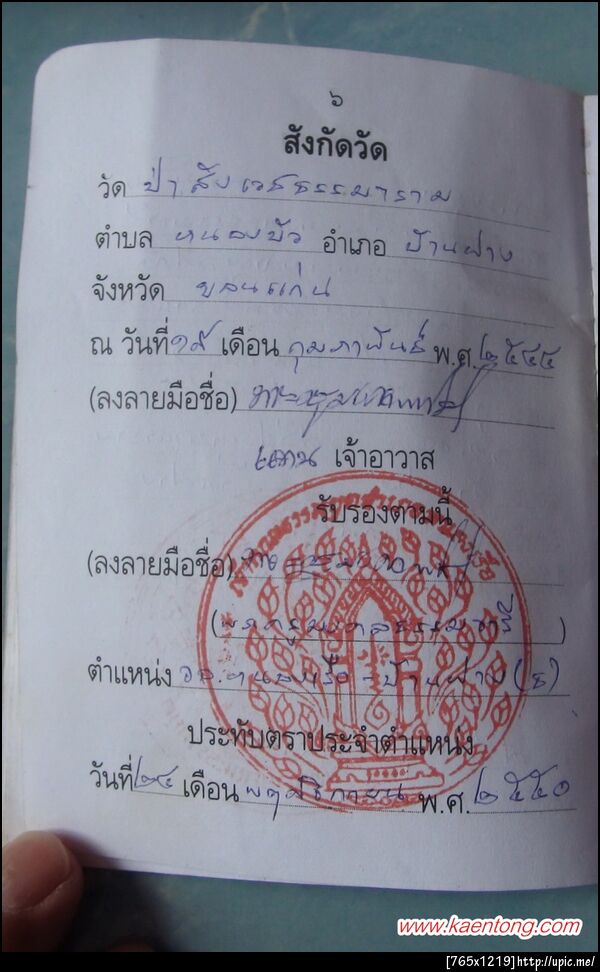 ๖
สังกัดวัด
วัด ป่าสังเวชธรรมาราม
ตำบล หนองบัว อำเภอ บ้านฝาง
จังหวัด ขอนแก่น
ณ วันที่ ๑๙ เดือน กุมภาพันธ์ พ.ศ. ๒๕๔๔
(ลงลายมือชื่อ)
แทน เจ้าอาวาส
รับรองตามนี้
(ลงลายมือชื่อ)
(พระครูมงคลธรรมวาที)
ตำแหน่ง จอ.หนองเรือ - บ้านฝาง (ธ)
ประทับตราประจำตำแหน่ง
วันที่ ๒๔ เดือน พฤศจิกายน พ.ศ. ๒๕๕๐
www.kaentong.com
[765x1219]http://upic.me/